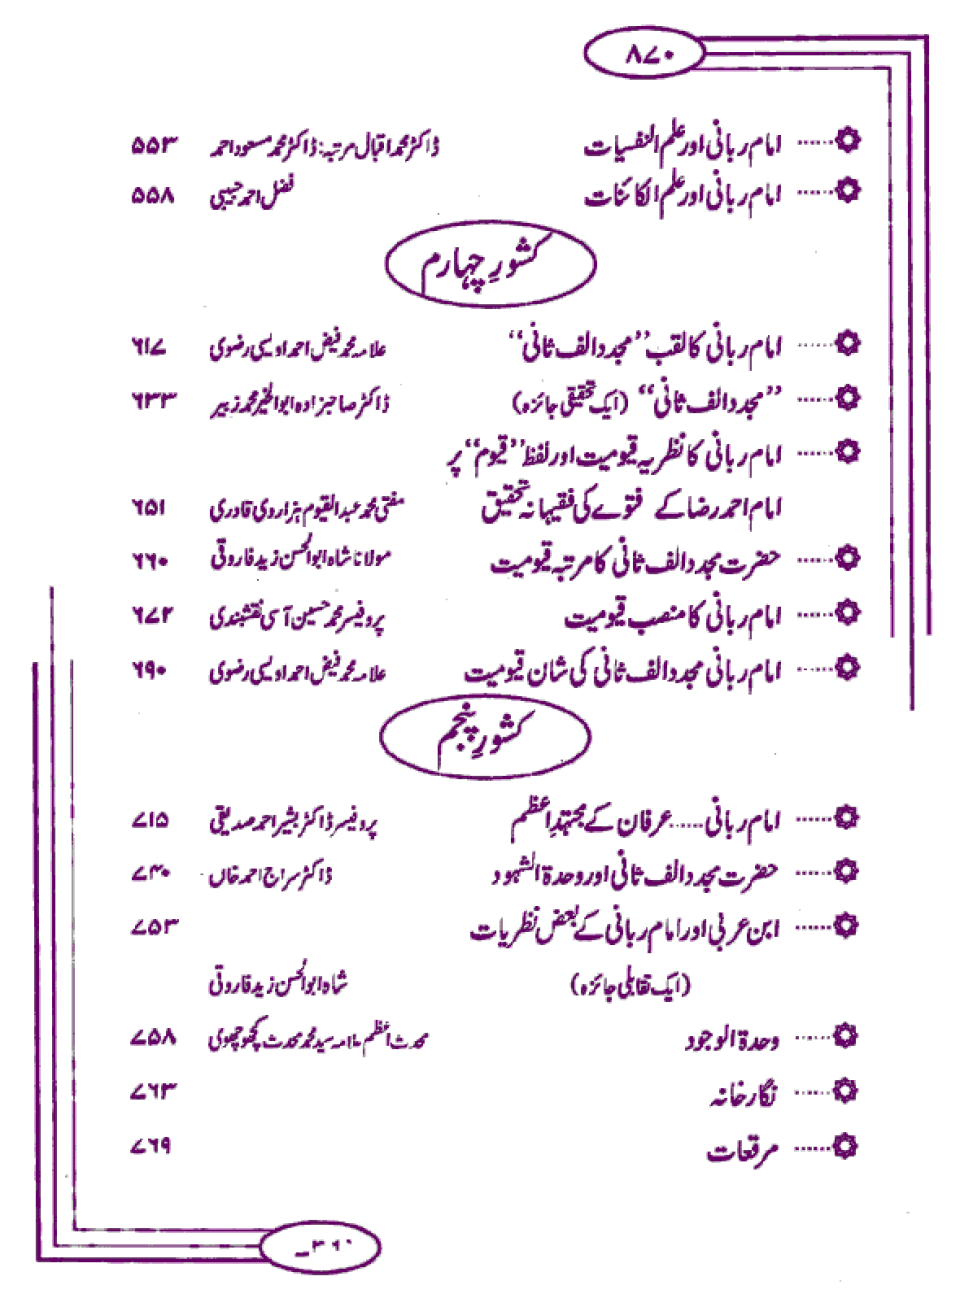 ۸۷۰
امام ربانی اور علم النفسیات ڈاکٹر محمد اقبال مرتبہ: ڈاکٹر محمد مسعود احمد ۵۵۳
امام ربانی اور علم الکائنات فضل احمد حبیبی ۵۵۸
کشورِ چہارم
امام ربانی کا لقب ”مجدد الف ثانی“ علامہ محمد فیض احمد اویسی رضوی ۶۱۷
”مجدد الف ثانی“ (ایک تحقیقی جائزہ) ڈاکٹر صاحبزادہ ابوالخیر محمد زبیر ۶۳۳
امام ربانی کا نظریہ قیومیت اور لفظ ”قیوم“ پر
امام احمد رضا کے فتوے کی فقیہانہ تحقیق مفتی محمد عبدالقیوم ہزاروی قادری ۶۵۱
حضرت مجدد الف ثانی کا مرتبہ قیومیت مولانا شاہ ابوالحسن زید فاروقی ۶۶۰
امام ربانی کا منصب قیومیت پروفیسر محمد حسین آسی نقشبندی ۶۷۲
امام ربانی مجدد الف ثانی کی شان قیومیت علامہ محمد فیض احمد اویسی رضوی ۶۹۰
کشورِ پنجم
امام ربانی......عرفان کے مجتہدِ اعظم پروفیسر ڈاکٹر بشیر احمد صدیقی ۷۱۵
حضرت مجدد الف ثانی اور وحدۃ الشہود ڈاکٹر سراج احمد خاں ۷۴۰
ابن عربی اور امام ربانی کے بعض نظریات ۷۵۳
(ایک تقابلی جائزہ) شاہ ابوالحسن زید فاروقی
وحدۃ الوجود محدث اعظم علامہ سید محمد محدث کچھوچھوی ۷۵۸
نگارخانہ ۷۶۳
مرقعات ۷۶۹